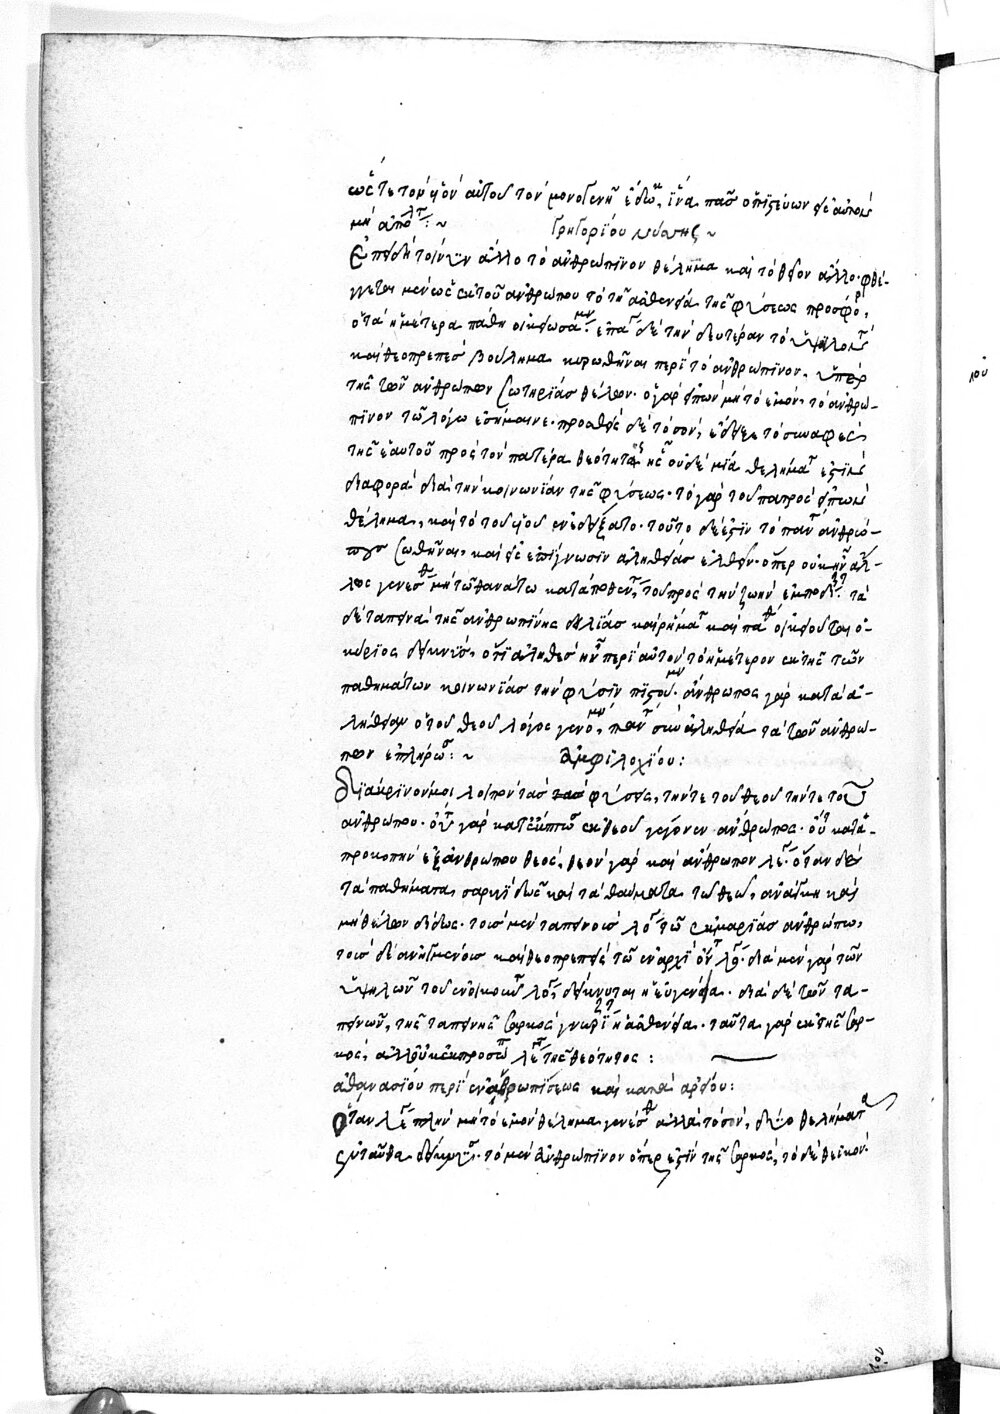 ὥστε τὸν υἱὸν αὐτοῦ τὸν μονογενῆ ἔδω, ἵνα πᾶσ ὁ πιστεύων εἰς αὐτὸν
μὴ ἀπολ :~ Γρηγορίου νύσης ~
Ἐπειδὴ τοίνυν ἄλλο τὸ ἀνθρώπινον θέλημα καὶ τὸ θεῖον ἄλλο· φθέ-
γγεται μὲν ὡς ἐκ τοῦ ἀνθρώπου τὸ τῆ ἀσθενεία τῆς φύσεως προσφο,
ὁ τὰ ἡμέτερα πάθη οἰκειωσάμν· ἐπα δὲ τὴν δευτέραν τὸ ὑψηλὸν
καὶ θεοπρεπὲσ βούλημα κυρωθῆναι περὶ τὸ ἀνθρώπινον, ὑπὲρ
τῆς τῶν ἀνθρώπων σωτηρίασ θέλων· ὁ γὰρ εἰπὼν μὴ τὸ ἐμὸν, τὸ ἀνθρώ-
πινον τῶ λόγω ἐσήμαινε· προσθεὶς δὲ τὸ σὸν, ἔδειξε τὸ συναφὲς
τῆς ἑαυτοῦ πρὸς τὸν πατέρα θεότητος ἧς οὐδὲ μία θελήμα ἐστὶν
διαφορὰ διὰ τὴν κοινωνίαν τῆς φύσεως· τὸ γὰρ τοῦ πατρὸς εἰπὼν
θέλημα, καὶ τὸ τοῦ υἱοῦ ἐνεδείξατο· τοῦτο δέ ἐστιν τὸ παν ἀνθρώ-
πουσ σωθῆναι, καὶ εἰς ἐπίγνωσιν ἀληθείασ ἐλθεῖν· ὅπερ οὐκ ἦν ἄλ-
λως γενέσθ μὴ τῶ θανάτω καταποθεν, τοῦ πρὸς τὴν ζωὴν ἐμποδι· τὰ
δὲ ταπεινὰ τῆς ἀνθρωπίνης δειλίασ καὶ ρήμα καὶ παθ οἰκειοῦται ὁ
κύριος δεικνὺσ, ὅτι ἀληθὲσ ἦν περὶ αὐτὸν τὸ ἡμέτερον ἐκ τῆς τῶν
παθημάτων κοινωνίασ τὴν φύσιν πιστούμν· ἄνθρωπος γὰρ κατὰ ἀ-
λήθειαν ὁ τοῦ θεοῦ λόγος γενόμν, παν σὺν ἀληθεία τὰ τῶν ἀνθρώ-
πων ἐπλήρω :~ Ἀμφιλοχίου:
Διακρινόν μοι λοιπὸν τὰσ φύσεις, τήν τε τοῦ θεοῦ τήν τε τοῦ
ἀνθρώπου· οὔτ γὰρ κατ' ἔκπτω ἐκ θεοῦ γέγονεν ἄνθρωπος· οὔτ κατὰ
προκοπὴν ἐξ ἀνθρώπου θεός, θεὸν γὰρ καὶ ἄνθρωπον λε· ὅταν δὲ
τὰ παθήματα, σαρκὶ δῶς καὶ τὰ θαύματα τῶ θεῶ, ἀνάγκη καὶ
μὴ θέλων δίδως· τοισ μὲν ταπεινοισ λο τῶ ἐκ μαρίασ ἀνθρώπω,
τοισ δὲ ἀνηγμένοισ καὶ θεοπρεπεῖς τῶ ἐν ἀρχῆ ὄντ λο· διὰ μὲν γὰρ τῶν
ὑψηλῶν τοῦ ἐνοικοῦν λο, δείκνυται ἡ εὐγένεια· διὰ δὲ τῶν τα-
πεινῶν, τῆς ταπεινῆς σαρκὸς γνωρι ἡ ἀσθένεια· ταῦτα γὰρ ἐκ τῆς σαρ-
κὸς, ἀλλ' οὐκ ἐκ προσώπ λε τῆς θεότητος :
ἀθανασίου περὶ ἐνανθρωπίσεως καὶ κατὰ ἀρείου:
Ὅταν λε πλὴν μὴ τὸ ἐμὸν θέλημα γενέσθ ἀλλὰ τὸ σὸν, δύο θελήματα
ἐνταῦθα δείκνυσ· τὸ μὲν ἀνθρώπινον ὅπερ ἐστὶν τῆς σαρκὸς, τὸ δὲ θεϊκὸν·